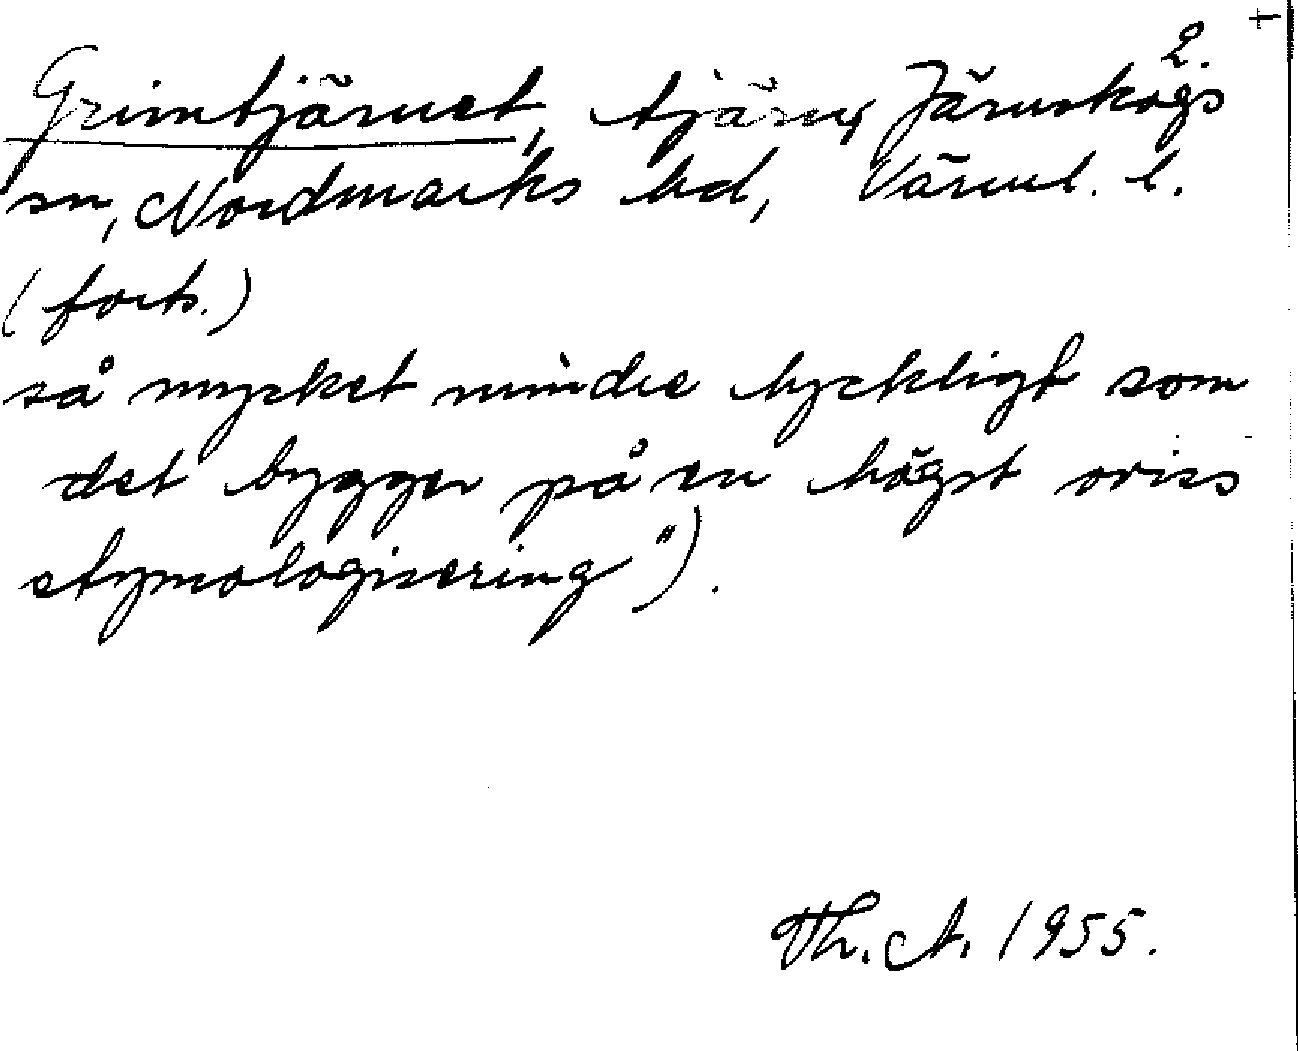 2.
Grimtjärnet, tjärn, Järnskogs
sn, Nordmarks hd, Värml. l.
(forts.)
så mycket mindre lyckligt som
det bygger på en högst oviss
etymologisering").
Th. A. 1955.